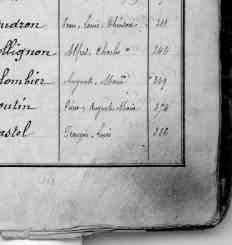 udron Jean, Louis, Théodore 211
ollignon Alfred, Charles 240
lombier Auguste, Marie 249
outin Pierre, Auguste, Marie 274
astel François, Louis